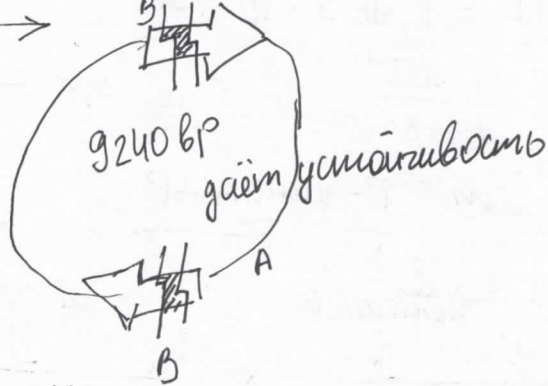 B
9240 bp
даёт устойчивость
A
B